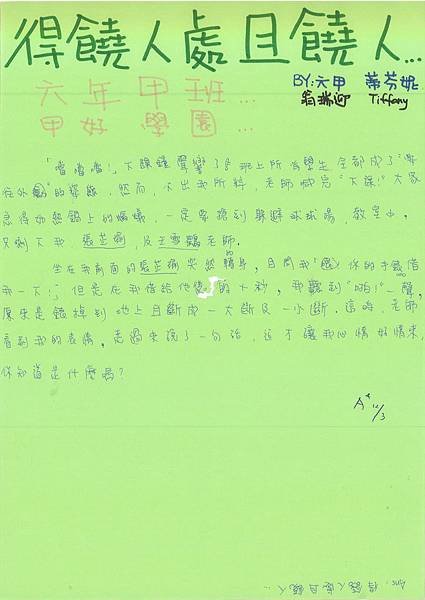 得饒人處且饒人...
BY:六甲 蒂芬妮
翁瑞迎 Tiffany
六年甲班...
甲好學園...
「噹噹噹!」下課鐘聲響了!全班上所有學生全部成了"嚮
往外面"的姿態,然而,不出我所料,老師喊完"下課!"大家
急得如熱鍋上的螞蟻,一定要搶到躲避球球場,教室中,
只剩下我,張芷瑜,及王雪鷗老師.
坐在我前面的張芷瑜突然轉身,且問我「欸!你的手錶借
我一下!」但是在我借給他 的十秒,我聽到"啪!"一聲,
原來是錶掉到地上且斷成一大斷及一小斷.這時,老師
看到我的表情,走過來說了一句話,這才讓我心情好情來,
你知道是什麼嗎?
A+ 12/3
得饒人處且饒人...